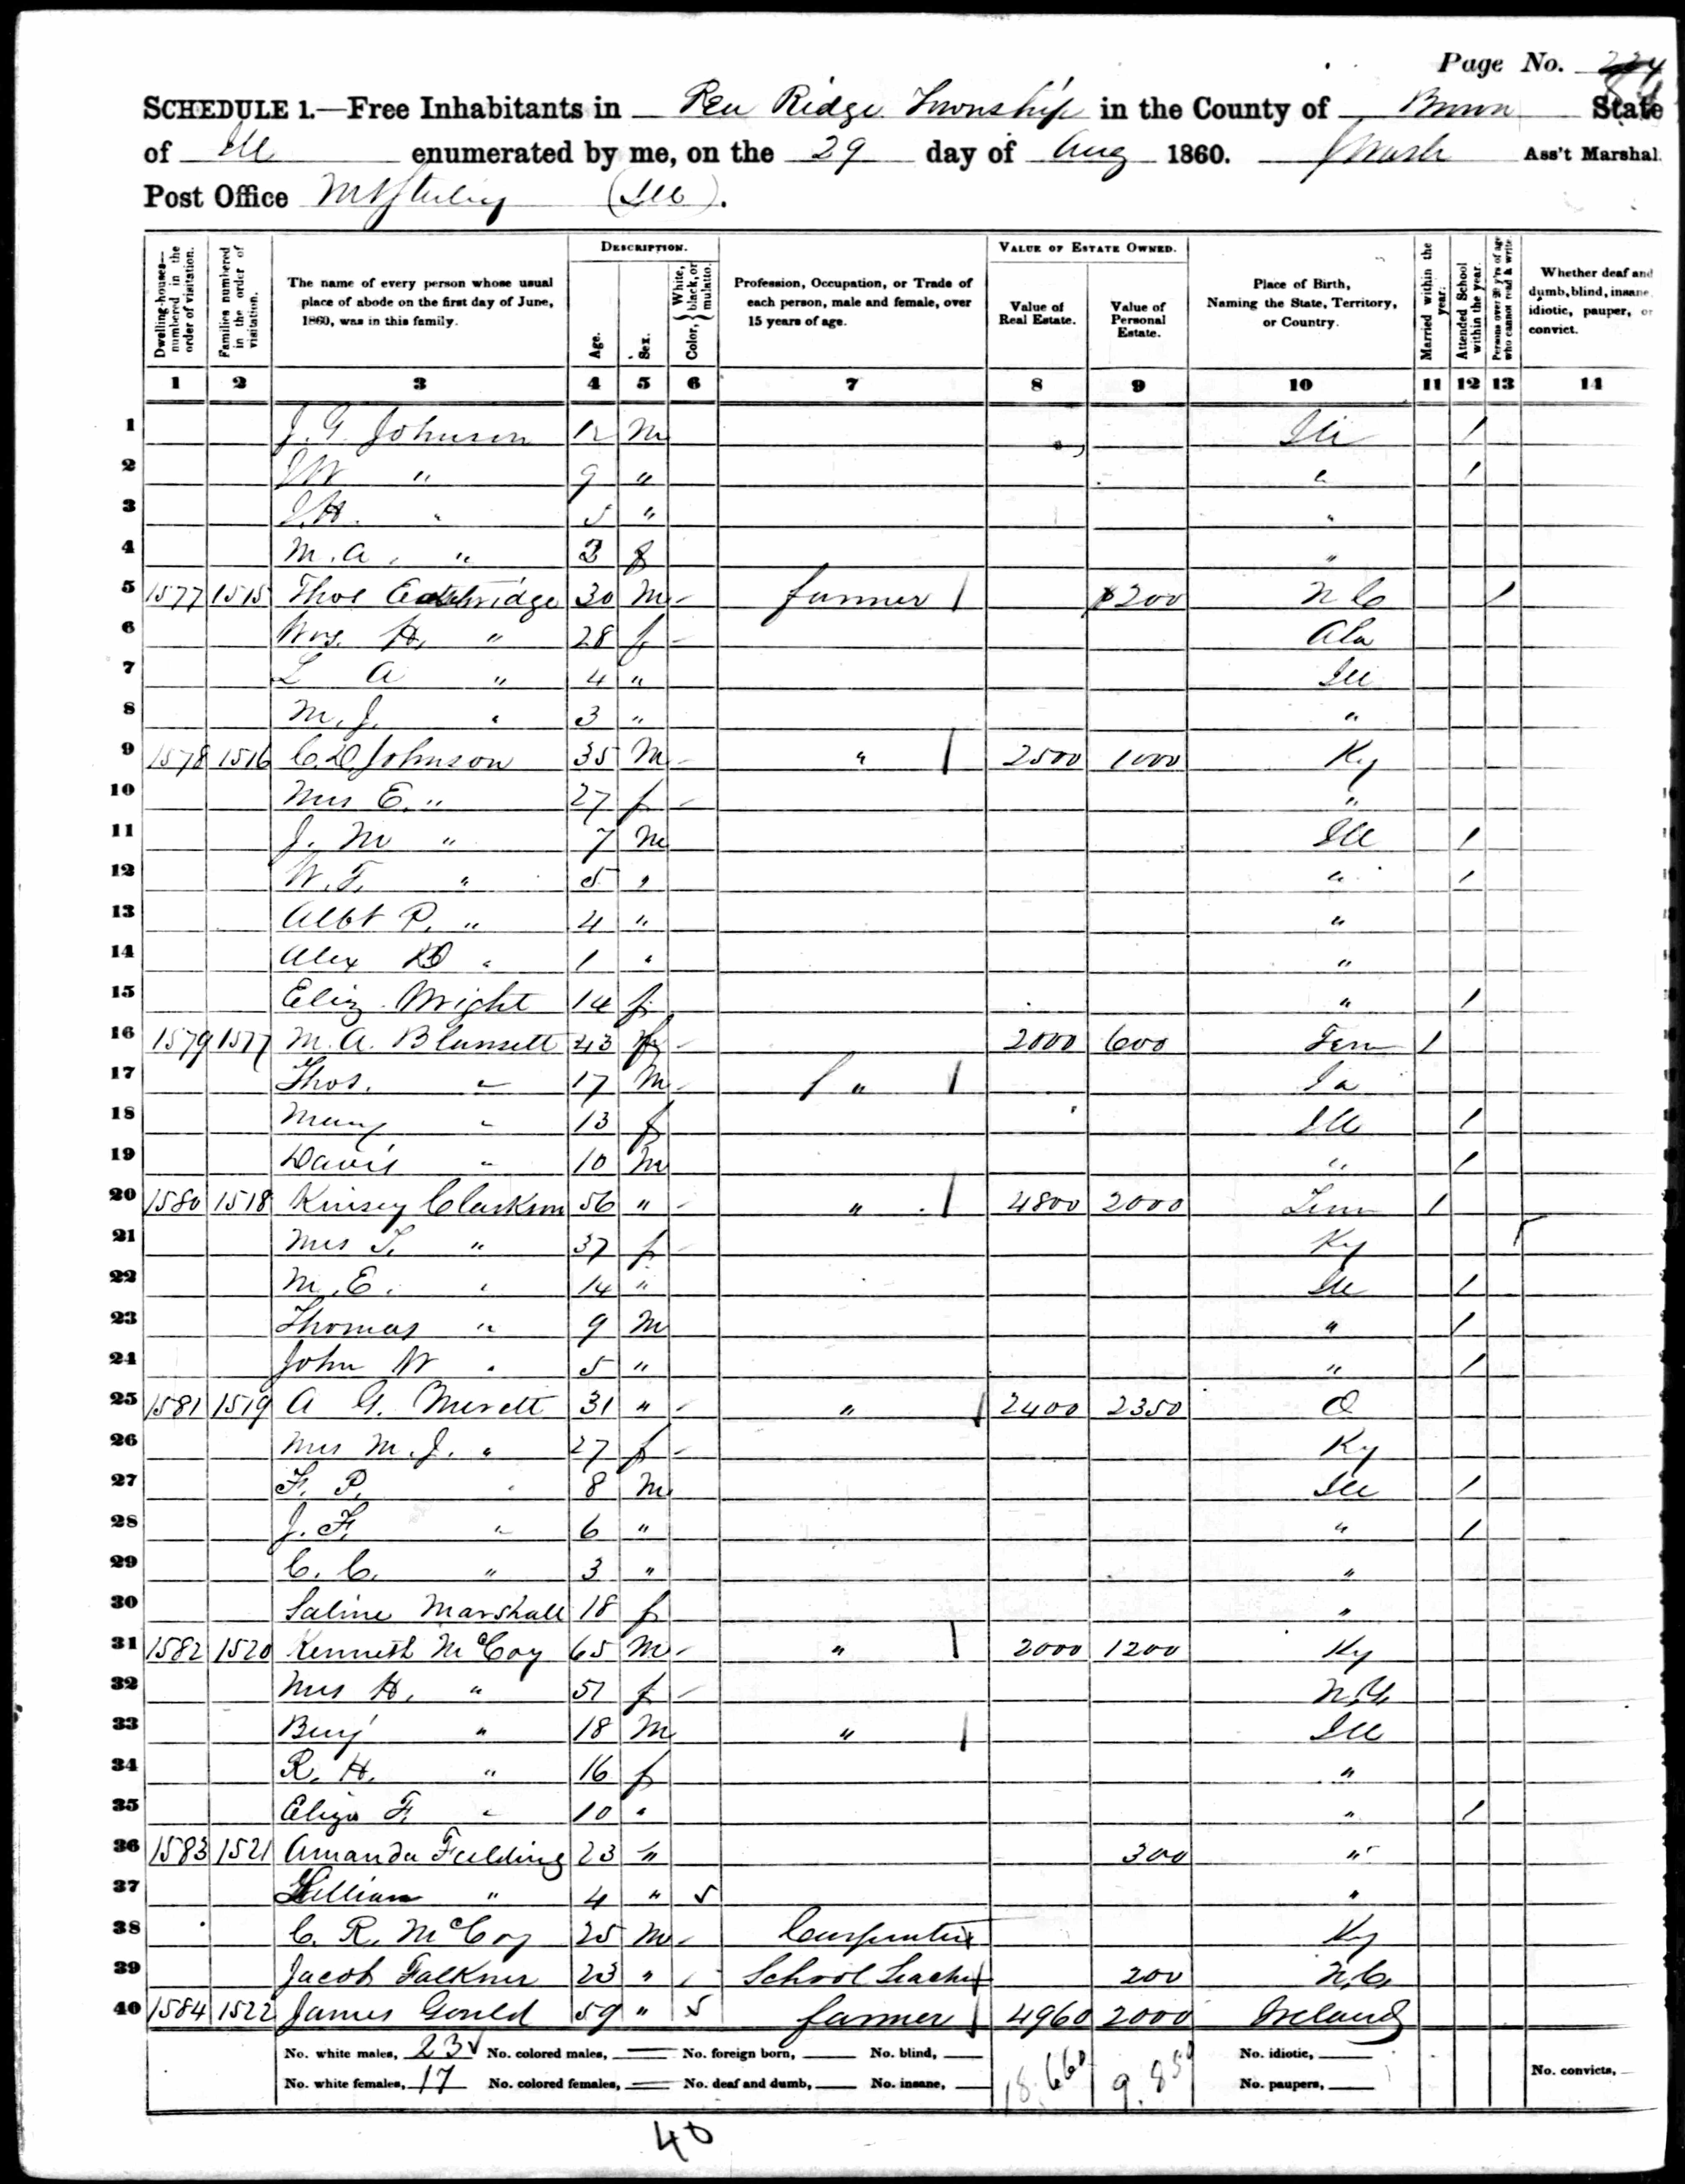 Page No. 224
SCHEDULE 1.—Free Inhabitants in Pea Ridge Township in the County of Brown State
of Ill enumerated by me, on the 29 day of Aug 1860. Ass't Marshal.
Post Office Mt Sterling (Ill).
Dwelling-houses—numbered in the order of visitation.
Families numbered in the order of visitation.
The name of every person whose usual place of abode on the first day of June, 1860, was in this family.
DESCRIPTION.
Age.
Sex.
Color, { White, black, or mulatto.
Profession, Occupation, or Trade of each person, male and female, over 15 years of age.
VALUE OF ESTATE OWNED.
Value of Real Estate.
Value of Personal Estate.
Place of Birth, Naming the State, Territory, or Country.
Married within the year.
Attended School within the year.
Persons over 20 y'rs of age who cannot read & write.
Whether deaf and dumb, blind, insane, idiotic, pauper, or convict.
1 2 3 4 5 6 7 8 9 10 11 12 13 14
1 J. G. Johnson 12 m Ill /
2 J W " 9 " " /
3 J. H. " 5 " "
4 M. A. " 3 f "
5 1577 1515 Thos 30 M farmer / $200 N C /
6 Mrs. H. " 28 f Ala
7 L A " 4 " Ill
8 M. J. " 3 " "
9 1578 1516 C. D. Johnson 35 M " / 2500 1000 Ky
10 Mrs E. " 27 f "
11 J. M " 7 m Ill /
12 W. F. " 5 " " /
13 Albt P. " 4 " "
14 Alex " 1 " "
15 Eliz Wright 14 f " /
16 1579 1517 M. A. Blansett 43 f 2000 600 Ten /
17 Thos. " 17 M f " / Ia
18 Mary " 13 f Ill /
19 Davis " 10 m " /
20 1580 1518 Kinsey Clarkson 56 " " / 4800 2000 Tenn /
21 Mrs T. " 37 f Ky
22 M. E. " 14 " Ill /
23 Thomas " 9 M " /
24 John W " 5 " " /
25 1581 1519 A G. Merett 31 " " / 2400 2350 O
26 Mrs M. J. " 27 f Ky
27 F. P. " 8 m Ill /
28 J. F. " 6 " " /
29 C. C. " 3 " "
30 Saline Marshall 18 f "
31 1582 1520 Kenneth McCoy 65 M " / 2000 1200 Ky
32 Mrs H. " 51 f N.Y.
33 Benj " 18 M " / Ill
34 R. H. " 16 f "
35 Eliza F. " 10 " " /
36 1583 1521 Amanda Fielding 23 " 300 "
37 Lillian " 4 " "
38 C. R. McCoy 25 M Carpenter Ky
39 Jacob Falkner 23 " School Teacher 200 N.C.
40 1584 1522 James Gould 59 " farmer / 4960 2000 Ireland
No. white males, 23 No. colored males, — No. foreign born, No. blind, 18.660 9.850 No. idiotic, No. convicts,
No. white females, 17 No. colored females, — No. deaf and dumb, No. insane, No. paupers,
40